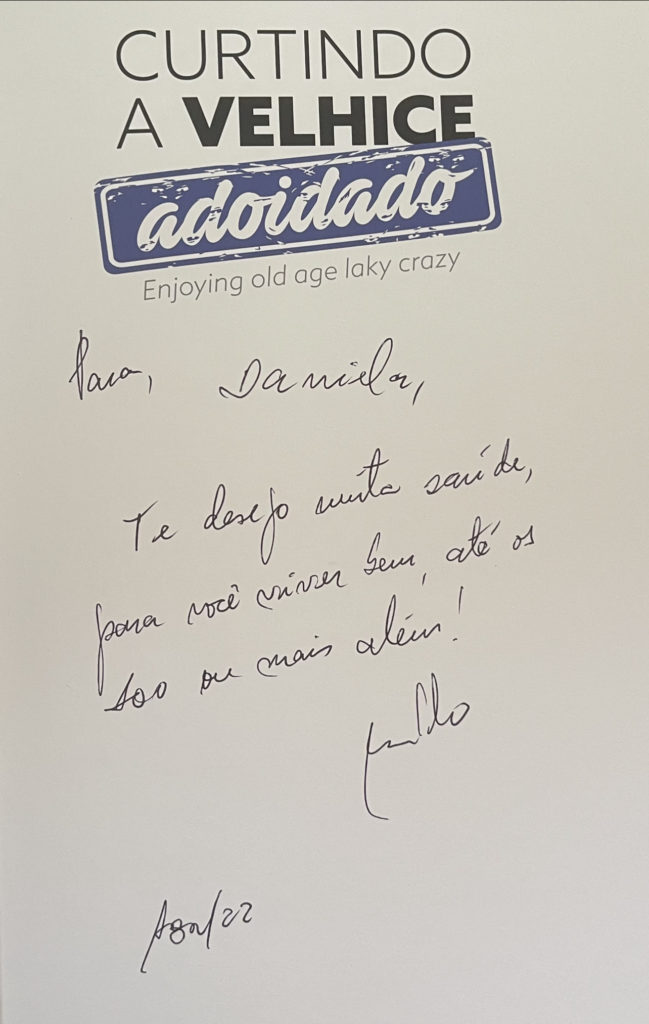 CURTINDO
A VELHICE
adoidado
Enjoying old age laky crazy
Para, Daniela,
Te desejo muita saúde,
para você viver bem, até os
100 ou mais além!